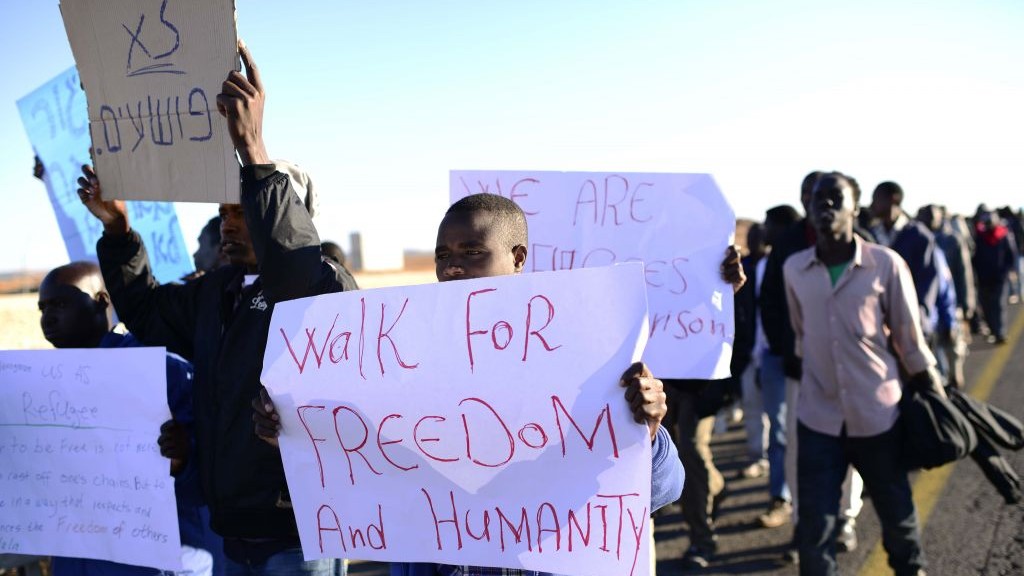 לא
פושעים.
WE ARE
REFUGEES
Walk FOR
FREEDOM
And HUMANITY
US AS
Refugee
to be Free is not
cast off one's chains, But to
in a way that respects and
the Freedom of others